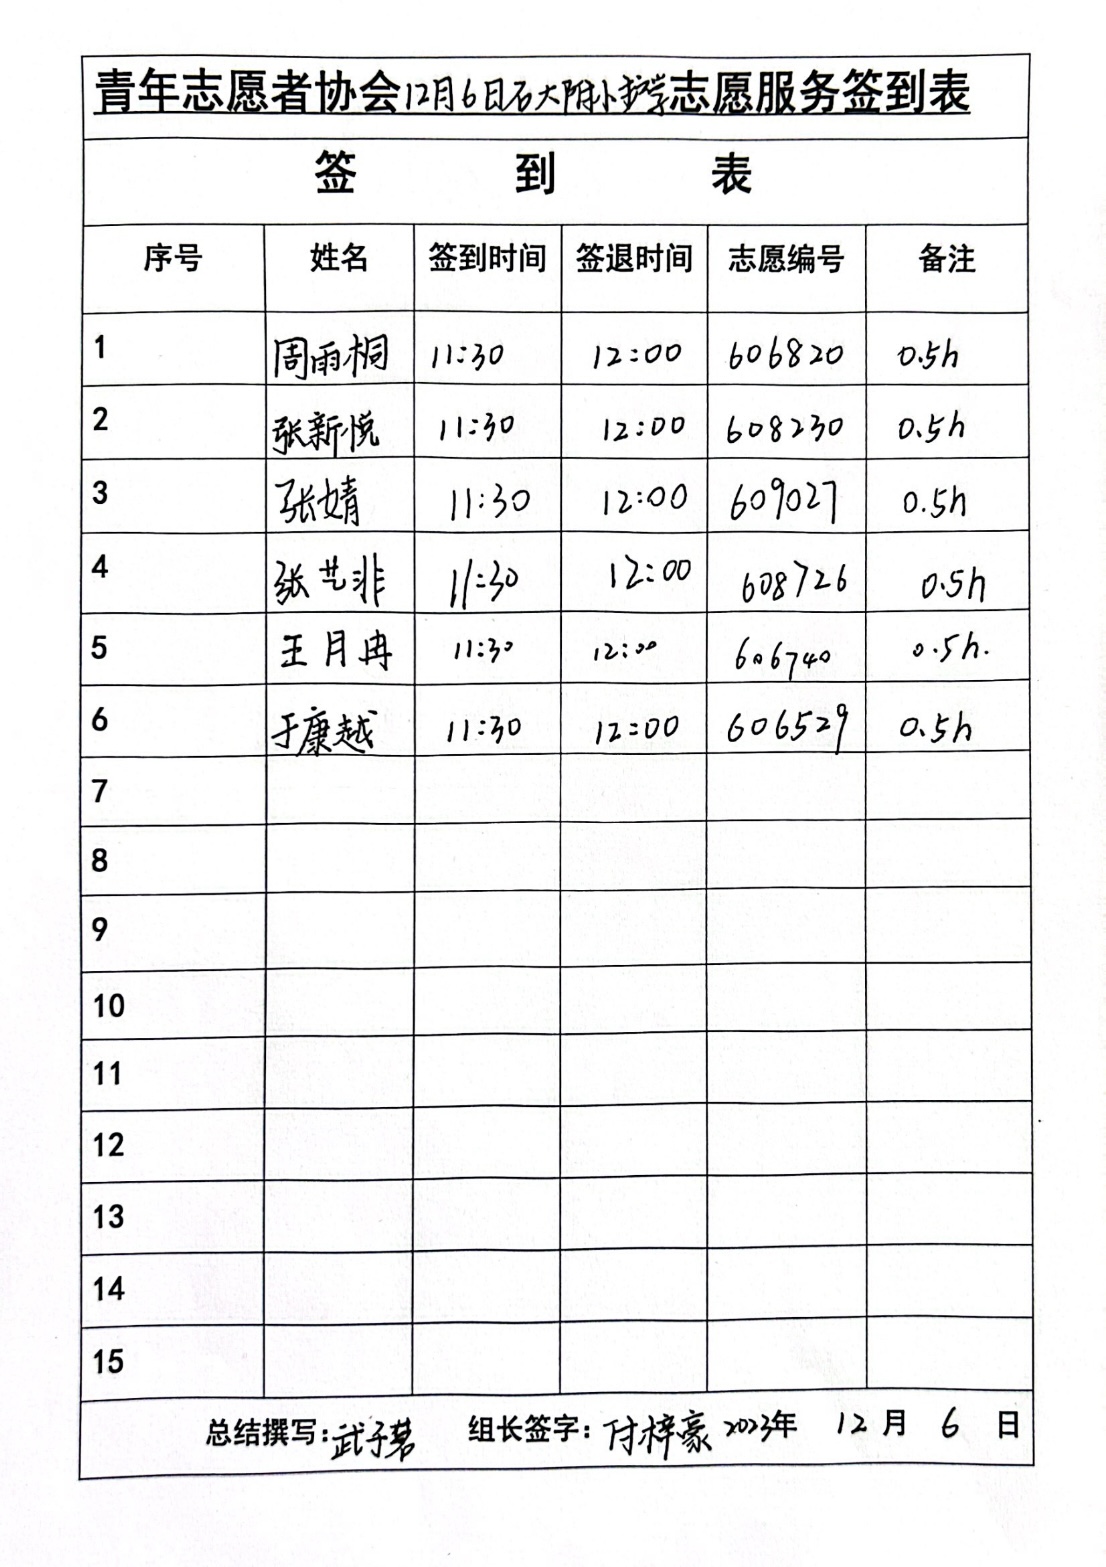 青年志愿者协会12月6日石大附小护学志愿服务签到表
签 到 表
序号 姓名 签到时间 签退时间 志愿编号 备注
1 周雨桐 11:30 12:00 606820 0.5h
2 张新悦 11:30 12:00 608230 0.5h
3 张婧 11:30 12:00 609027 0.5h
4 张艺非 11:30 12:00 608726 0.5h
5 王月冉 11:30 12:00 606740 0.5h.
6 于康越 11:30 12:00 606529 0.5h
7
8
9
10
11
12
13
14
15
总结撰写:武子茗 组长签字:付梓豪 2023年 12月 6 日